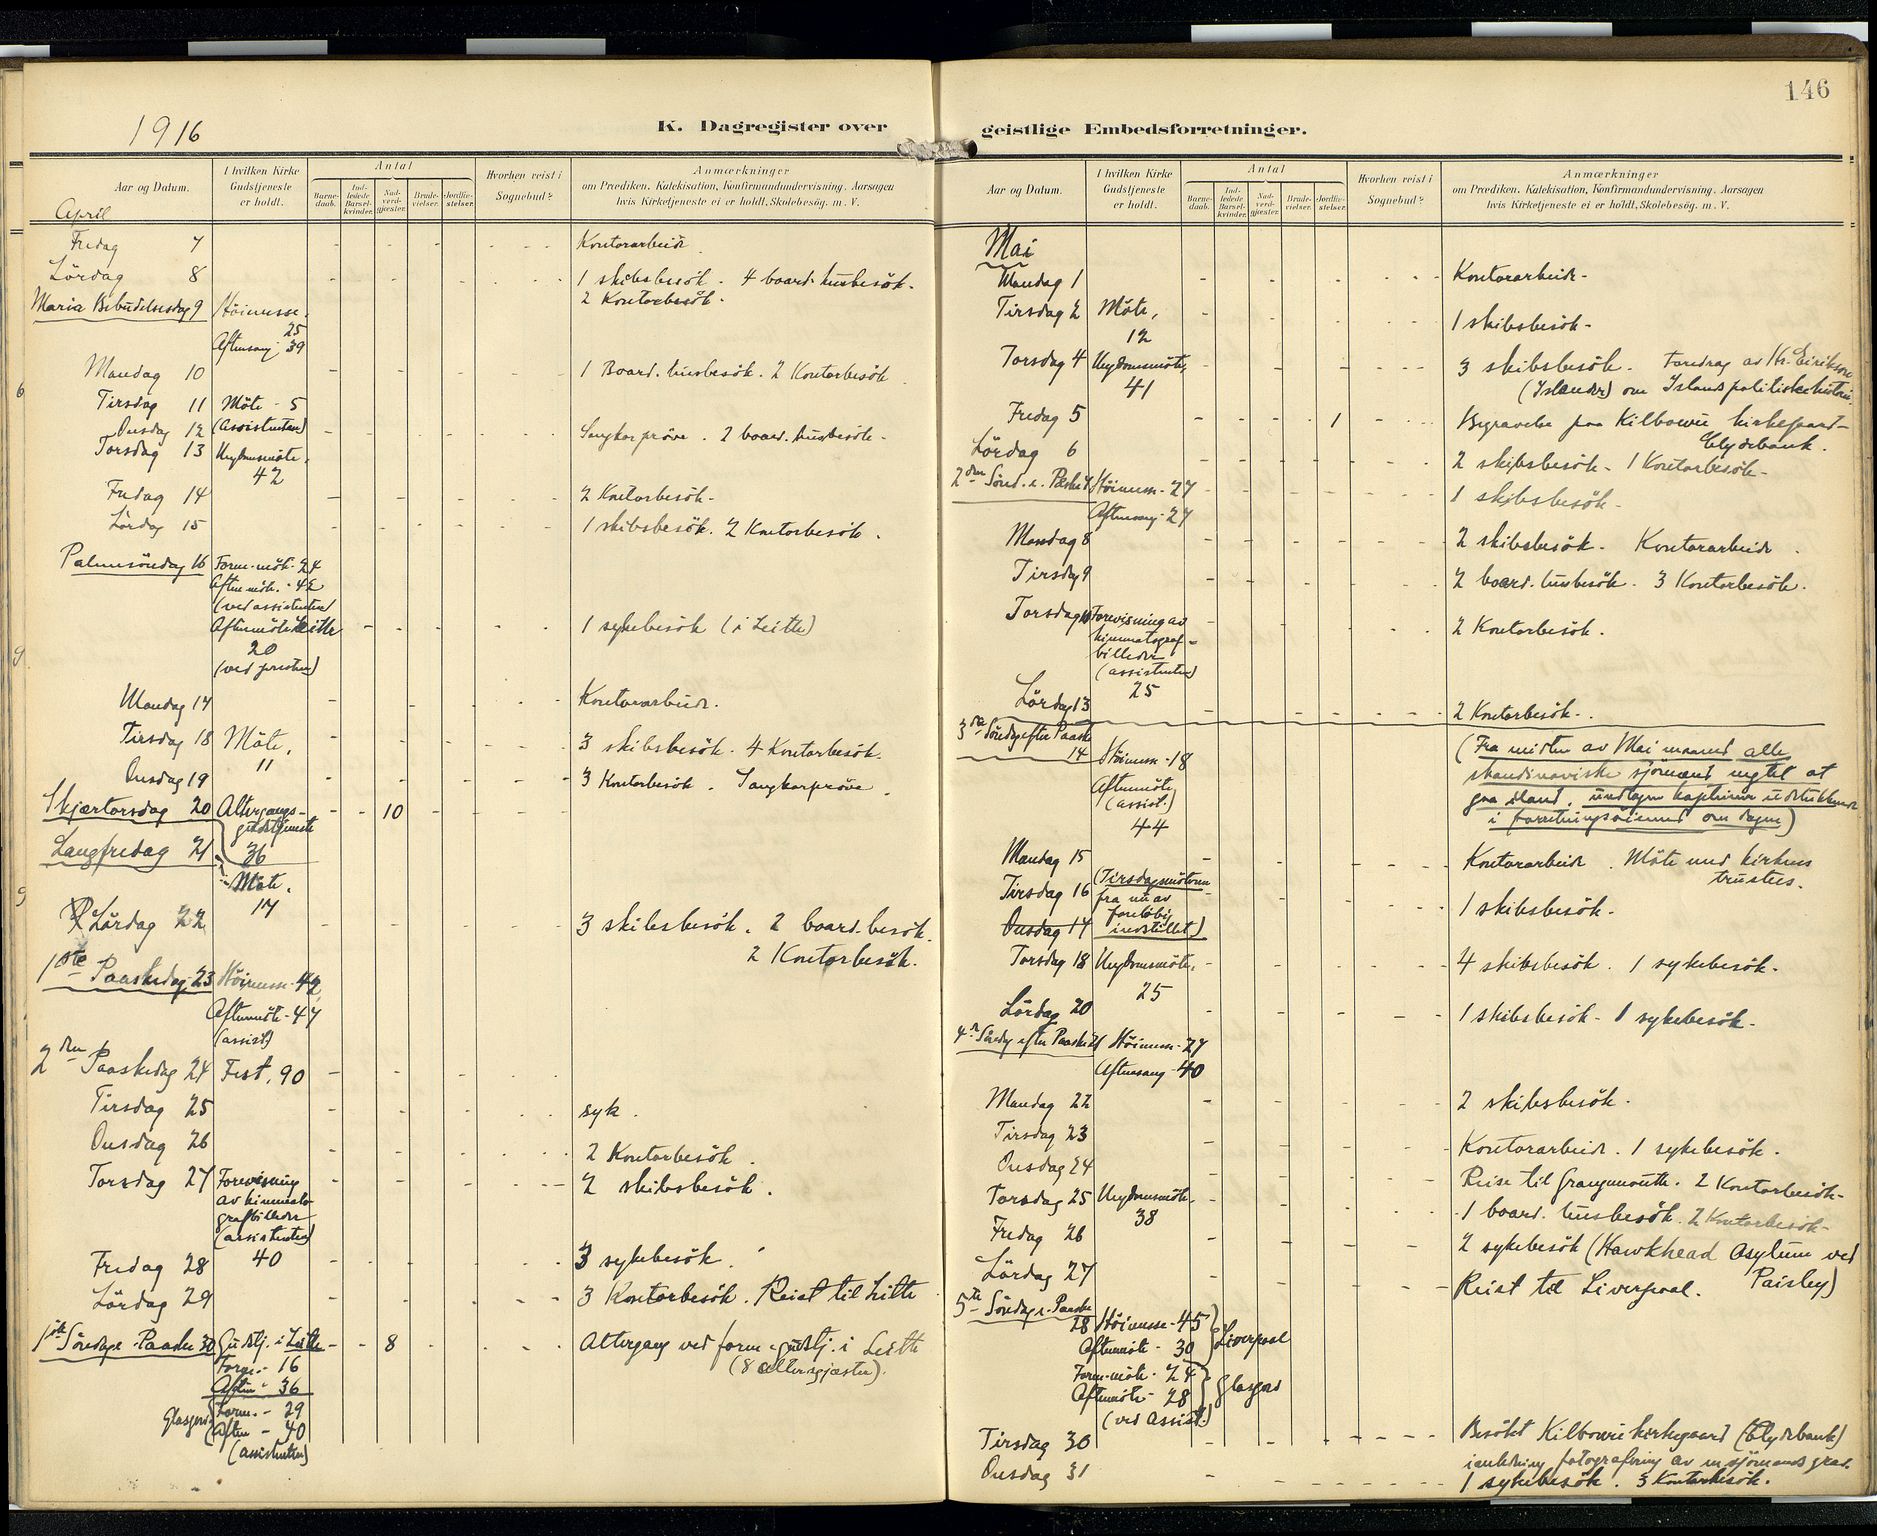 146
1916
K. Dagregister over geistlige Embedsforretninger.
Aar og Datum.
I hvilken Kirke Gudstjeneste er holdt.
Antal
Barne-daab.
Ind-ledede Barsel-kvinder.
Nad-verd-gjæster.
Brude-vielser.
Jordfæ-stelser.
Hvorhen reist i Sognebud?
Anmærkninger
om Prædiken, Katekisation, Konfirmandundervisning. Aarsagen
hvis Kirketjeneste ei er holdt, Skolebesög. m. V.
April
Fredag 7 - - - - - - Kontorarbeide.
Lördag 8 - - - - - - 1 skibsbesök. 4 board.husbesök.
Maria Bebudelsesdag 9 Höimesse. 2 Kontorbesök.
25
Aftensang 39
Mandag 10 - - - - 1 Board.husbesök. 2 Kontorbesök
Tirsdag 11 Möte - 5
Onsdag 12 (Assistenten) - - - - Sangkorpröve. 2 board.husbesök.
Torsdag 13 Ungdomsmöte.
42
Fredag 14 - - - - 2 Kontorbesök.
Lördag 15 - - - - 1 skibsbesök. 2 Kontorbesök.
Palmesöndag 16 Form.möt. 24
Aftenmöt. - 42
(ved assistenten)
Aftenmöte Leith - - - - 1 sykebesök (i Leith)
20
(ved presten)
Mandag 17 - - - - Kontorarbeide.
Tirsdag 18 Möte, - - - - 3 skibsbesök. 4 Kontorbesök.
11
Onsdag 19 - - - - 3 Kontorbesök. Sangkorpröve.
Skjærtorsdag 20 Altergangs- - - 10 - - -
gudstjeneste
Langfredag 21 36
Möte.
17
Lördag 22 - - - - 3 skibsbesök. 2 board.besök.
2 Kontorbesök.
1ste Paaskedag 23 Höimesse - 42
Aftenmöte - 47
(assist)
2den Paaskedag 24 Fest, 90 - - - -
Tirsdag 25 - - - - syk.
Onsdag 26 - - - - 2 Kontorbesök.
Torsdag 27 Forevisning - - - - 2 skibsbesök.
av kinemato-
grafbilleder
(assistenten)
40
Fredag 28 - - - - 3 sykebesök.
Lördag 29 - - - - 3 Kontorbesök. Reist til Leith
1ste Söndag e. Paaske 30 Gudstj. i Leith - - 8 - - - Altergang ved form.gudstj. i Leith
Form. - 16 (8 altergjæster).
Aften - 36
Glasgow Form. - 29
Aften - 40
(assistenten)
Aar og Datum.
I hvilken Kirke Gudstjeneste er holdt.
Antal
Barne-daab.
Ind-ledede Barsel-kvinder.
Nad-verd-gjæster.
Brude-vielser.
Jordfæ-stelser.
Hvorhen reist i Sognebud?
Anmærkninger
om Prædiken, Katekisation, Konfirmandundervisning. Aarsagen
hvis Kirketjeneste ei er holdt, Skolebesög. m. V.
Mai
Mandag 1 - - - - Kontorarbeide.
Tirsdag 2 Möte, - - - - 1 skibsbesök.
12
Torsdag 4 Ungdomsmöte, - - - - 3 skibsbesök. Foredrag av Hr. Eirikson
41 (Islænder) om Islands politiske historie.
Fredag 5 - - - - 1 - Begravelse paa Kilbowie kirkegaard-
Clydebank.
Lördag 6 - - - - 2 skibsbesök. 1 Kontorbesök.
2den Sönd. e. Paaske 7 Höimess. - 27 1 skibsbesök.
Aftensang - 27
Mandag 8 - - - - 2 skibsbesök. Kontorarbeide.
Tirsdag 9 - - - - 2 board.husbesök. 3 Kontorbesök.
Torsdag Forevisning av - - - - 2 Kontorbesök.
kinematograf-
billeder
(assistenten)
25
Lördag 13 - - - - 2 Kontorbesök.
3die Söndag efter Paaske (Fra midten av Mai maaned alle
14 Höimess - 18 skandinaviske sjömænd negtet at
Aftenmöte gaa iland, undtagen kapteiner
(assist.) i forretningsöiemed om dagen)
44
Mandag 15 - - - - Kontorarbeide. Möte med kirkens
Tirsdag 16 (Tirsdagsmöterne trustees.
fra nu av - - - - 1 skibsbesök.
Onsdag 17 foreløbig
indstillet)
Torsdag 18 Ungdomsmöte. - - - - 4 skibsbesök. 1 sykebesök.
25
Lördag 20 - - - - 1 skibsbesök. 1 sykebesök.
4de Söndag efter Paaske 21 Höimess - 27
Aftensang - 40
Mandag 22 - - - - 2 skibsbesök.
Tirsdag 23 - - - - Kontorarbeide. 1 sykebesök.
Onsdag 24 - - - - Reise til Grangemouth. 2 Kontorbesök.
Torsdag 25 Ungdomsmöte - - - - 1 board.husbesök. 2 Kontorbesök.
38
Fredag 26 - - - - 2 sykebesök (Hawkhead Asylum ved
Paisley)
Lördag 27 - - - - Reist til Liverpool.
5te Söndag e. Paaske
28 Höimesse - 45
Aftenmöte - 30 Liverpool
Form.möte - 24
Aftenmöte - 28 Glasgow
(ved Assist.)
Tirsdag 30 - - - - Besökt Kilbowie kirkegaard (Clydebank)
i anledning fotografering av en sjömands grav.
Onsdag 31 - - - - 1 sykebesök. 3 Kontorbesök.